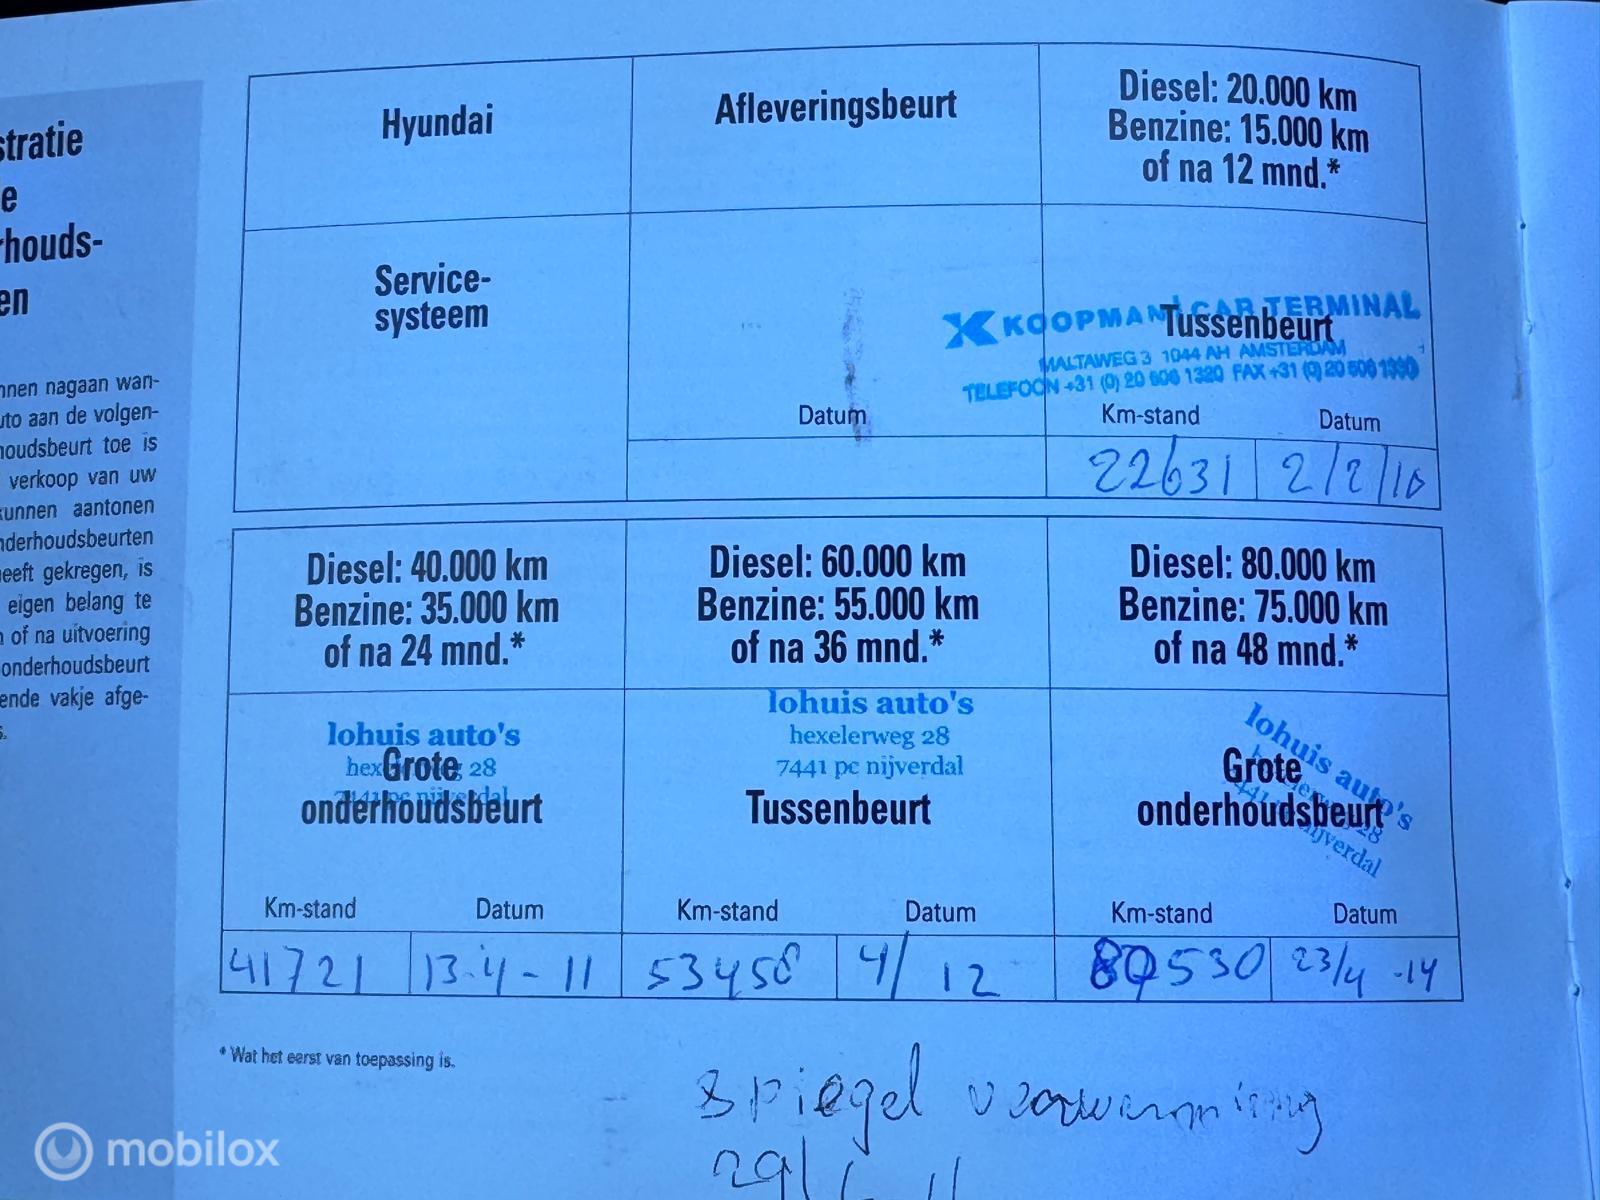 stratie
e
rhouds-
en
nnen nagaan wan-
uto aan de volgen-
houdsbeurt toe is
verkoop van uw
kunnen aantonen
nderhoudsbeurten
heeft gekregen, is
eigen belang te
n of na uitvoering
onderhoudsbeurt
ende vakje afge-
s.
Hyundai
Afleveringsbeurt
Diesel: 20.000 km
Benzine: 15.000 km
of na 12 mnd.*
Service-
systeem
KOOPMAN CAR TERMINAL
Tussenbeurt
MALTAWEG 3 1044 AH AMSTERDAM
TELEFOON +31 (0) 20 506 1320 FAX +31 (0) 20 506 1390
Datum
Km-stand Datum
22631 2/2/10
Diesel: 40.000 km
Benzine: 35.000 km
of na 24 mnd.*
Diesel: 60.000 km
Benzine: 55.000 km
of na 36 mnd.*
Diesel: 80.000 km
Benzine: 75.000 km
of na 48 mnd.*
lohuis auto's
hexelerweg 28
7441 pc nijverdal
Grote
onderhoudsbeurt
lohuis auto's
hexelerweg 28
7441 pc nijverdal
Tussenbeurt
lohuis auto's
hexelerweg 28
7441 pc nijverdal
Grote
onderhoudsbeurt
Km-stand Datum
41721 13-4-11
Km-stand Datum
53458 4/12
Km-stand Datum
80530 23/4-14
* Wat het eerst van toepassing is.
spiegel voorverwarming
mobilox